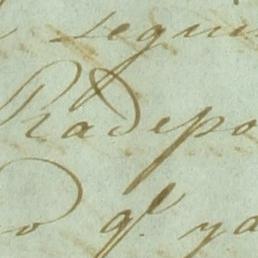 segui
Radepo
o ql ya